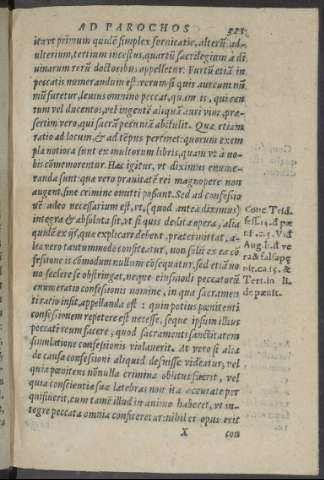 AD PAROCHOS 321
ita vt primum quidē simplex fornicatio, alterū adulterium,
vlterium, tertium incestus, quartū sacrilegium a di
uinarum rerū doctoribus appelletur. Furtū etiā in
peccatis numerandum est: verum si quis aureum nū
mū furetur, leuius omnino peccat, quam is, qui cen
tum vel ducentos, vel ingentē aliquā auri vim, præ
sertim vero, qui sacrā pecuniā abstulit. Quæ etiam
ratio ad locum, & ad tēpus pertinet: quorum exem
pla notiora sunt ex multorum libris, quam vt à no-
bis cōmemorentur. Hæc igitur, vt diximus enume-
randa sunt: quæ vero prauitatē rei magnopere non
augent, sine crimine omitti possunt. Sed ad confessio
nē adeo necessarium est, vt, (quod antea diximus)
integra & absoluta sit, vt si quis dedita opera, alia
quidē ex ijs, quæ explicari debent, prætereat, a-
lia vero tantummodo confiteatur, non solū ex ea cō
fessione is cōmodum nullum cōsequatur, sed etiā no
uo scelere se obstringat, neque eiusmodi peccatorū
enumeratio confessionis nomine, in qua sacramen
ti ratio insit, appellanda est: quin potius pœnitenti
confessionem repetere est necesse, seque ipsum illius
peccati reum facere, quod sacramenti sanctitatem
simulatione confessionis violauerit. At vero si alia
de causa confessioni aliquid defuisse videatur, vel
quia pœnitens nōnulla crimina oblitus fuerit, vel
quia conscientiæ suæ latebras non ita accurate per
quisiuerit, cum tamē illud in animo haberet, vt in-
tegre peccata omnia confiteretur: nihil et opus erit
X con
Conc. Trid.
sess.
c.5. Vid
Aug. l. de ve
ra & falsa pę
nit. ca. 15. &
Tert. in li.
de pœnit.